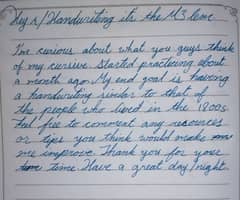 Hey r/Handwriting it's the M3 leme
I'm curious about what you guys think
of my cursive. Started practicing about
a month ago. My end goal is having
a handwriting similar to that of
the people who lived in the 1900s.
Feel free to comment any resources
or tips you think would make
me improve. Thank you for your
time. Have a great day/night.